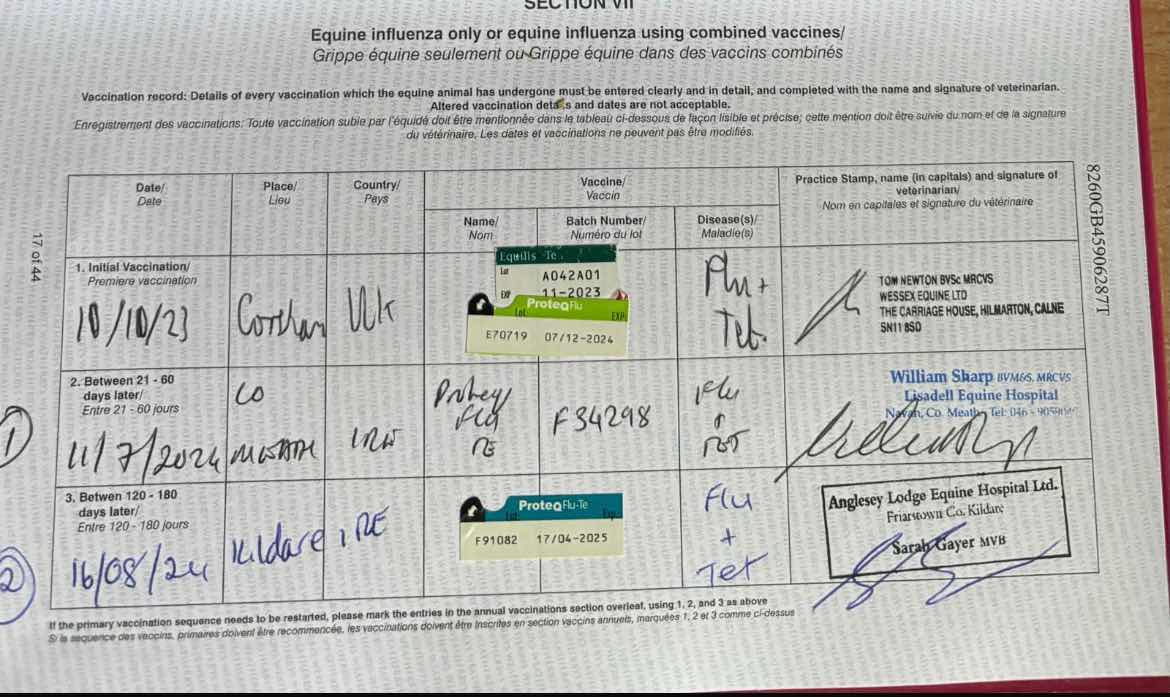 SECTION VII
Equine influenza only or equine influenza using combined vaccines/
Grippe équine seulement ou Grippe équine dans des vaccins combinés
Vaccination record: Details of every vaccination which the equine animal has undergone must be entered clearly and in detail, and completed with the name and signature of veterinarian.
Altered vaccination details and dates are not acceptable.
Enregistrement des vaccinations: Toute vaccination subie par l'équidé doit être mentionnée dans le tableau ci-dessous de façon lisible et précise; cette mention doit être suivie du nom et de la signature
du vétérinaire. Les dates et vaccinations ne peuvent pas être modifiés.
Date/
Date
Place/
Lieu
Country/
Pays
Vaccine/
Vaccin
Name/
Nom
Batch Number/
Numéro du lot
Disease(s)/
Maladie(s)
Practice Stamp, name (in capitals) and signature of
veterinarian/
Nom en capitales et signature du vétérinaire
1. Initial Vaccination/
Premiere vaccination
10/10/23
Corsham
UK
Equilis Te
Lot A042A01
EXP 11-2023
ProteqFlu
Lot: EXP:
E70719 07/12-2024
Flu +
Tet.
TOM NEWTON BVSc MRCVS
WESSEX EQUINE LTD
THE CARRIAGE HOUSE, HILMARTON, CALNE
SN11 8SD
2. Between 21 - 60
days later/
Entre 21 - 60 jours
1
11/7/2024
CO
MEATH
Flu
TE
F34298
Flu
TET
William Sharp BVM&S, MRCVS
Lisadell Equine Hospital
Navan, Co. Meath, Tel: 046 -
3. Betwen 120 - 180
days later/
Entre 120 - 180 jours
2
16/08/24
Kildare
IRE
ProteqFlu-Te
Lot: Exp.:
F91082 17/04-2025
Flu
+
Tet
Anglesey Lodge Equine Hospital Ltd.
Friarstown Co. Kildare
Sarah Gayer MVB
If the primary vaccination sequence needs to be restarted, please mark the entries in the annual vaccinations section overleaf, using 1, 2, and 3 as above
Si la sequence des vaccins, primaires doivent être recommencée, les vaccinations doivent être inscrites en section vaccins annuels, marquées 1, 2 et 3 comme ci-dessus
17 of 44
8260GB45906287T